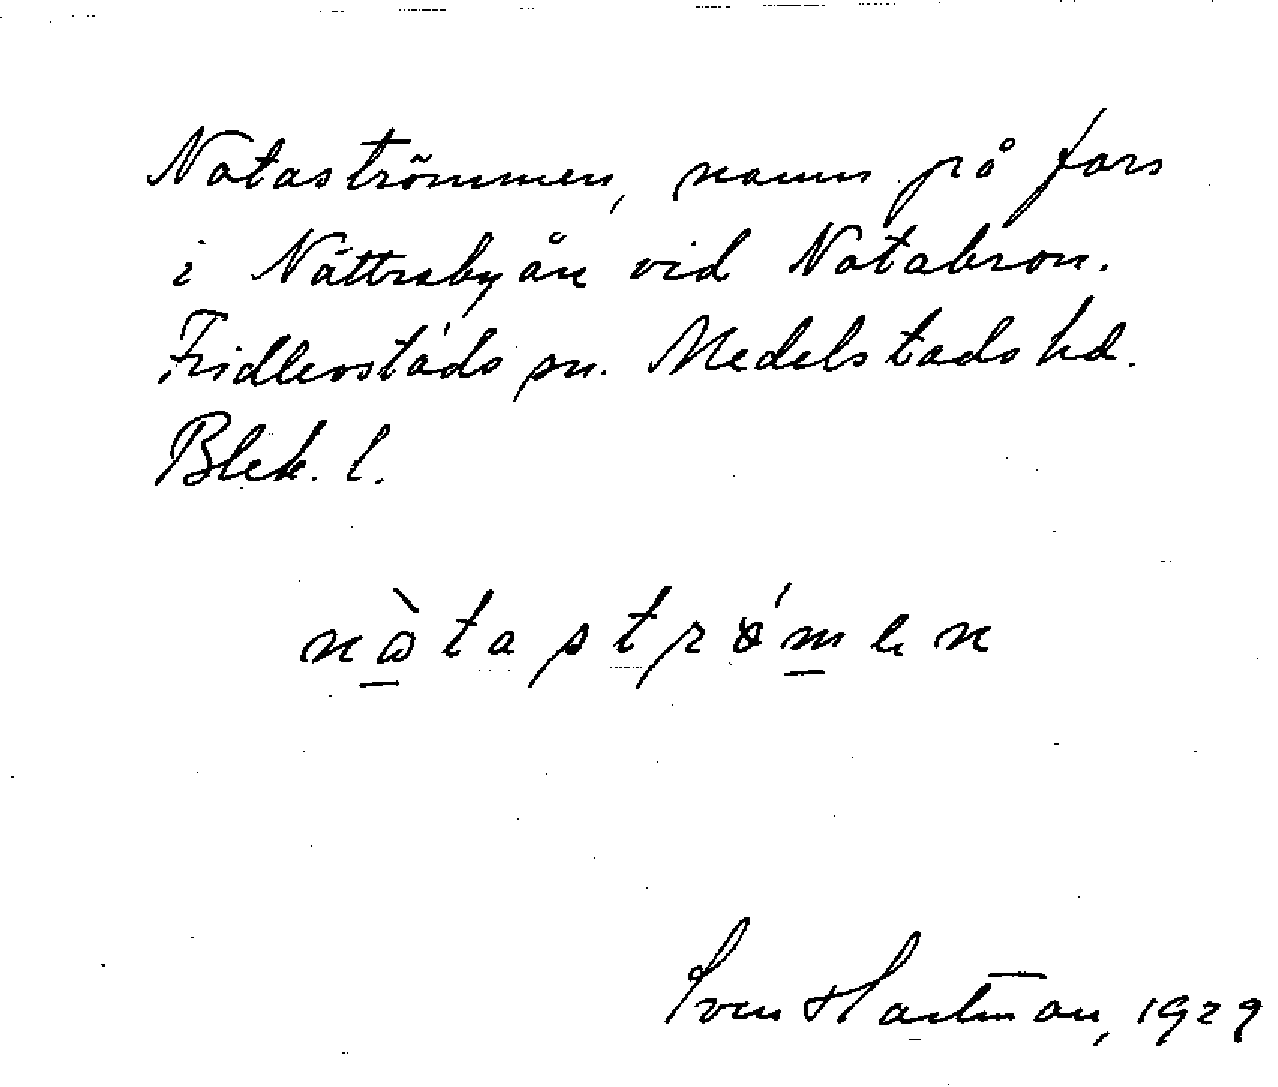 Nataströmmen, namn på fors
i Nättrabyån vid Natabron.
Fridlevstads sn. Medelstads hd.
Blek. l.
nàtaströ́men
Sven Hartman, 1929